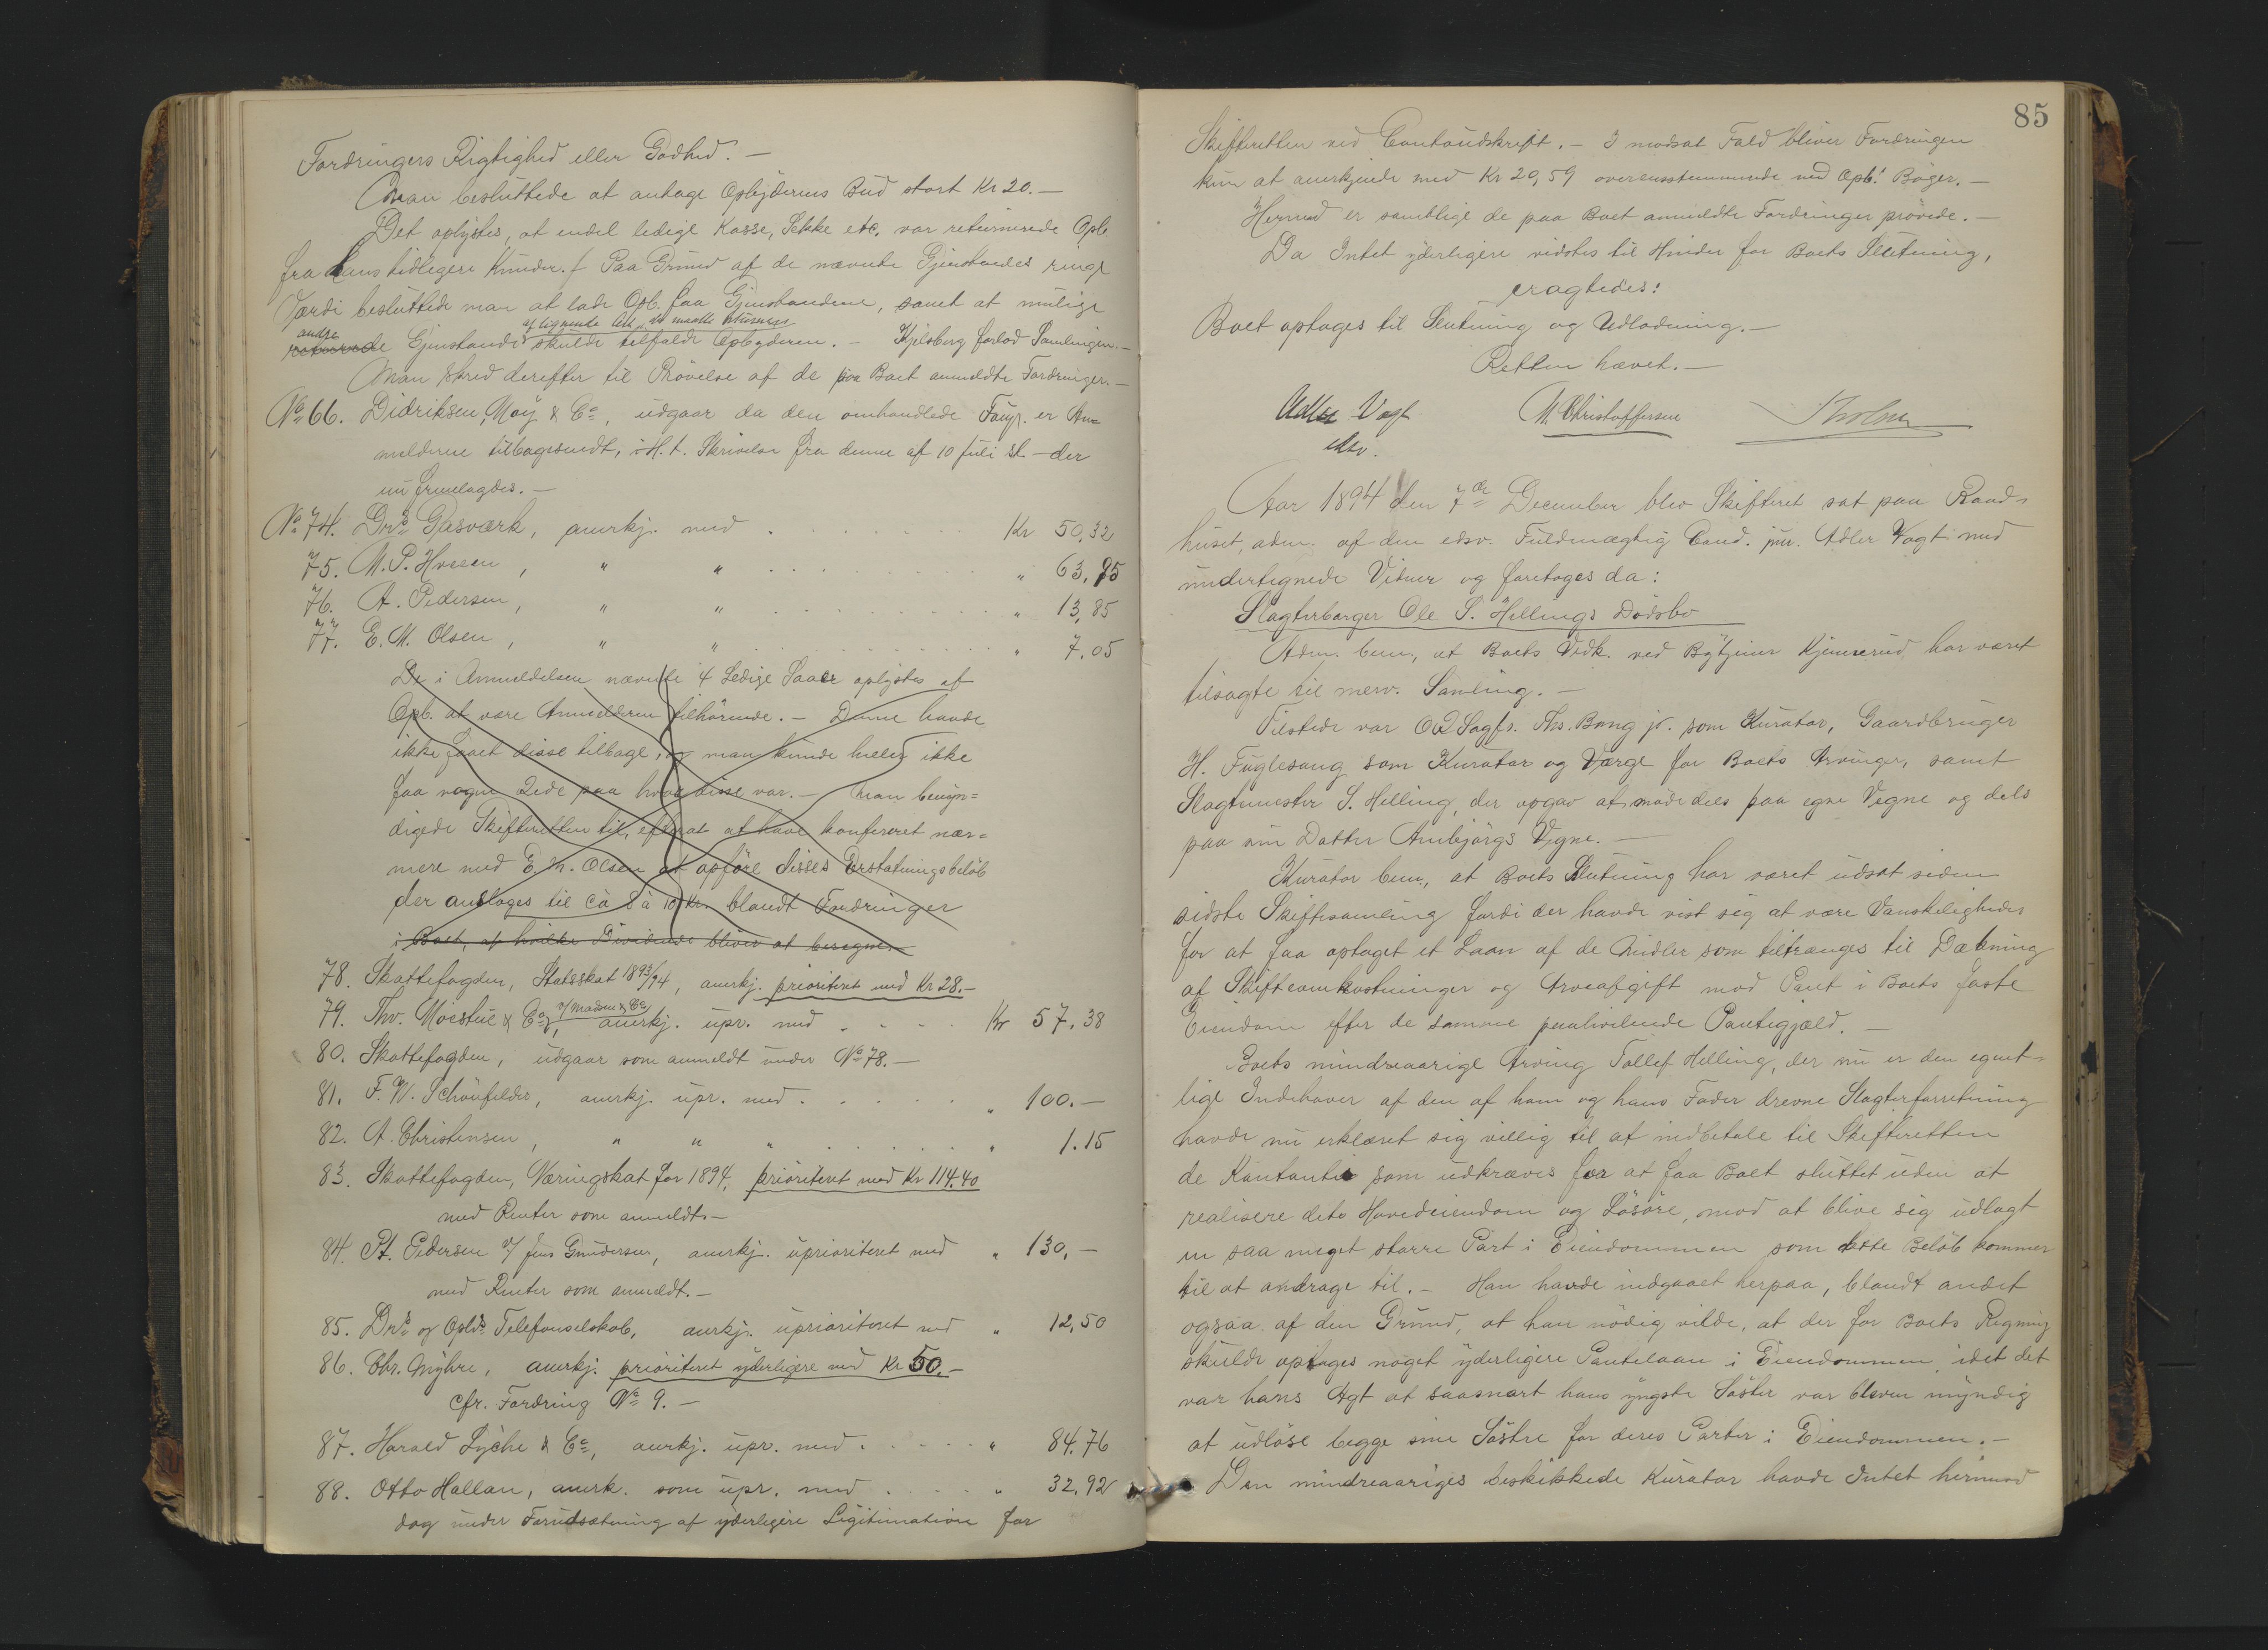 Fordringers Rigtighed eller Godhed. —
Man besluttede at antage Opbyderens Bud stort Kr 20. —
Det oplystes, at endel ledige Kasse, Sekke etc. var returnerede Opb.
fra hans tidligere Kunder. / Paa Grund af de nævnte Gjenstandes ringe
Værdi besluttede man at lade Opb. faa Gjenstandene, samt at mulige
andre af lignende Art, der maatte
Gjenstande skulde tilfalde Opbyderen. — Kjelsberg forlod Samlingen. —
Man skred derefter til Prövelse af de paa Boet anmeldte Fordringer. —
No 66. Didriksen, Moÿ & Co, udgaar da den omhandlede er An=
melderne tilbagesendt, i H. t. Skrivelse fra denne af 10 Juli sl. — der
nu fremlagdes. —
No 74. Drs Gasværk, anerkj. med . . . . . Kr 50,32
75. M. P. Hvseen, " " . . . . . " 63,95
76. A. Pedersen, " " . . . . . " 13,85
77. E. M. Olsen, " " . . . . . " 7.05
De i Anmeldelsen nævnte 4 Ledige Saaer oplystes af
Opb. at være Anmelderen tilhörende. — Denne havde
ikke faaet disse tilbage, og man kunde heller ikke
faa nogen Rede paa hvor disse var. — Man bemyn=
digede Skifteretten til, efterat at have konfereret nær=
mere med E. M. Olsen at opföre disses Erstatningsbelöb
der ansloges til ca 8 à 10 Kr. blandt Fordringer
i Boet, af hvilke Dividende bliver at beregne.
78. Skattefogden, Statsskat 1893/94, anerkj. prioriteret med Kr 28. —
79. Thv. Moestue & Co, v/ Madsen & Co, anerkj. upr. med . . . . Kr 57.38
80. Skattefogden, udgaar som anmeldt under No 78. —
81. F. W. Schönfelder, anerkj. upr. med . . . . . " 100. —
82. A. Christensen, " " " . . . . " 1.15
83. Skattefogden, Næringskat for 1894, prioriteret med Kr 114.40
med Renter som anmeldt. —
84. Pt. Pedersen v/ Jens Gundersen, anerkj. uprioriteret med " 130. —
med Renter som anmeldt. —
85. Drs og Oplds Telefonselskab, anerkj. uprioriteret med " 12,50
86. Chr. Myhre, anerkj. prioriteret yderligere med Kr 50. —
cfr. Fordring No 9. —
87. Harald Lyche & Co, anerkj. upr. med . . . . . " 84.76
88. Otto Hallan, anerk. som upr. med . . . . " 32.92
dog under Forudsætning af yderligere Legitimation for
85
Skifteretten ved Contoudskrift. — I modsat Fald bliver Fordringen
kun at anerkjende med Kr 20,59 overensstemmende med Opb.s Böger. —
Hermed er samtlige de paa Boet anmeldte Fordringer prövede. —
Da Intet yderligere vidstes til Hinder for Boets Slutning,
eragtedes:
Boet optages til Slutning og Udlodning. —
Retten hævet. —
Adler Vogt M. Christoffersen Tholm
edsv.
Aar 1894 den 7de December blev Skifteret sat paa Raad=
huset, adm. af den edsv. Fuldmægtig Cand. jur. Adler Vogt med
undertegnede Vidner og foretoges da:
Slagterborger Ole S. Hellings Dödsbo
Adm. bem., at Boets Vedk. ved Bytjener Kjemerud har været
tilsagte til nærv. Samling. —
Tilstede var O.R.Sagf. Ths. Bang jr. som Kurator, Gaardbruger
H. Fuglesang som Kurator og Værge for Boets Arvinger, samt
Slagtmester S. Helling, der opgav at möde dels paa egne Vegne og dels
paa sin Datter Anbjörgs Vegne. —
Kurator bem., at Boets Slutning har været udsat siden
sidste Skiftesamling fordi der havde vist sig at være Vanskeligheder
for at faa optaget et Laan af de Midler som tiltrænges til Dækning
af Skifteomkostninger og Arveafgift mod Pant i Boets faste
Eiendom efter de samme paahvilende Pantegjæld. —
Boets mindreaarige Arving Tollef Helling, der nu er den egent=
lige Indehaver af den af ham og hans Fader drevne Slagterforretning
havde nu erklæret sig villig til at indbetale til Skifteretten
de Kontanter som udkræves for at faa Boet sluttet uden at
realisere dets Hovedeiendom og Lösöre, mod at blive sig udlagt
en saa meget större Part i Eiendommen som dette Belöb kommer
til at andrage til. — Han havde indgaaet herpaa, blandt andet
ogsaa af den Grund, at han nödig vilde, at der for Boets Regning
skulde optages noget yderligere Pantelaan i Eiendommen, idet det
var hans Agt at saasnart hans yngste Söster var bleven myndig
at udlöse begge sine Söstre for deres Parter i Eiendommen. —
Den mindreaariges beskikkede Kurator havde Intet herimod